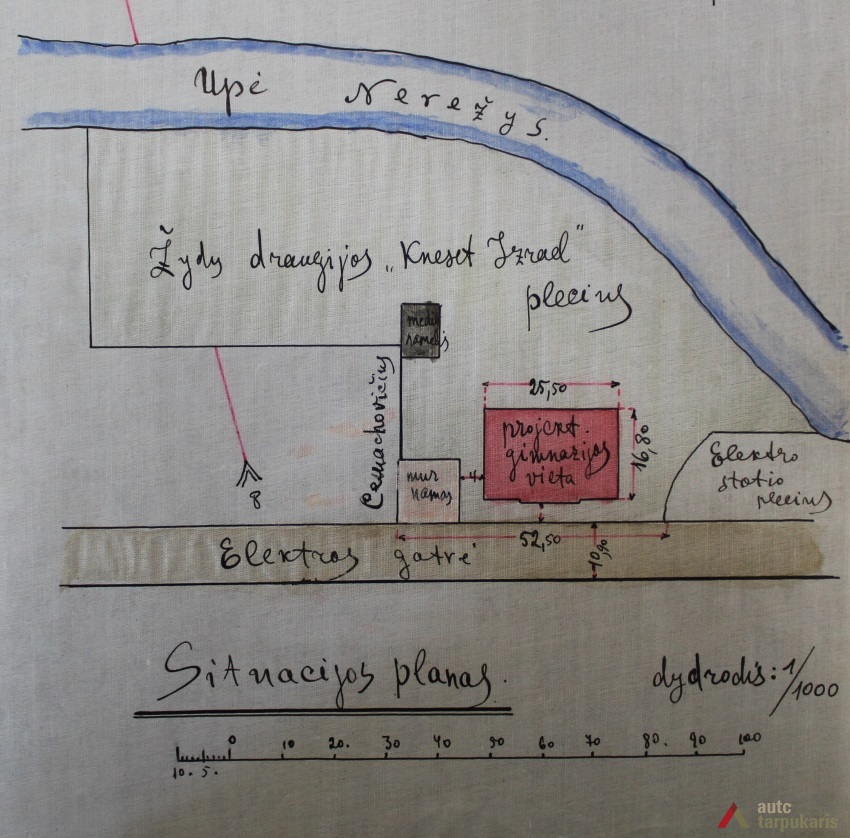 Upė Nerežys.
Žydų draugijos „Kneset Izrael"
plecius
medi
namelis
Cemachovičius
25,50
projekt.
gimnazijos
vieta
16,80
mur
namas
4
Elektro
statio
plecius
8
52,50
10,90
Elektros gatvė
Situacijos planas.
dydrodis: 1/1000
10. 5. 0 10 20. 30 40 50 60 70 80. 90 100
autc
tarpukaris